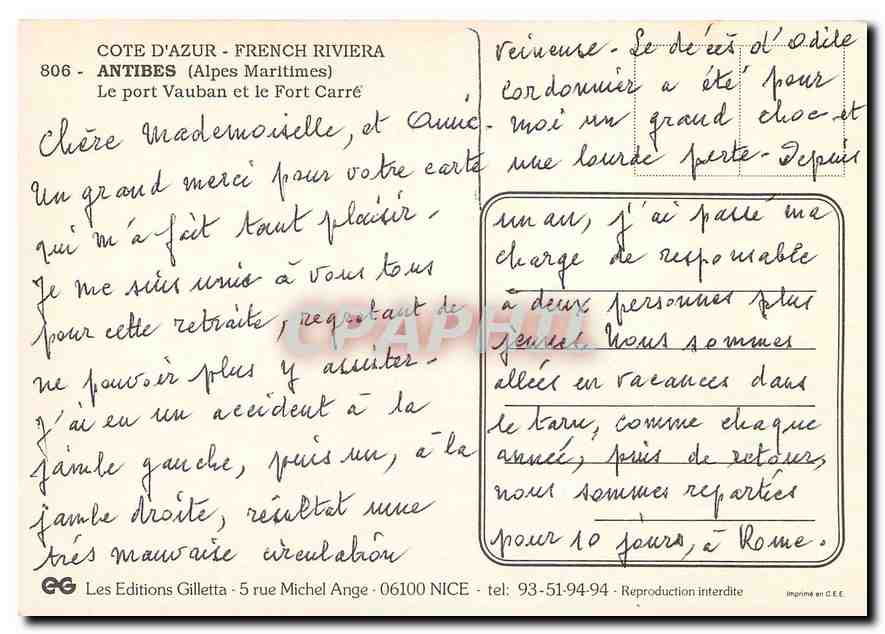 COTE D'AZUR - FRENCH RIVIERA
806 - ANTIBES (Alpes Maritimes)
Le port Vauban et le Fort Carré
Chère Mademoiselle, et Amie -
Un grand merci pour votre carte
qui m'a fait tant plaisir -
Je me suis unie à vous tous
pour cette retraite, regretant de
ne pouvoir plus y assister -
J'ai eu un accident à la
jambe gauche, puis un, à la
jambe droite, résultat une
très mauvaise circulation
veineuse - Le décès d'Odile
Cordonnier a été pour
moi un grand choc et
une lourde perte - Depuis
un an, j'ai passé ma
charge de responsable
à deux personnes plus
jeunes. Nous sommes
allées en vacances dans
le tarn, comme chaque
année, puis de retour,
nous sommes reparties
pour 10 jours, à Rome.
CPAPHIL
EG Les Editions Gilletta - 5 rue Michel Ange - 06100 NICE - tel: 93-51-94-94 - Reproduction interdite
Imprimé en C.E.E.